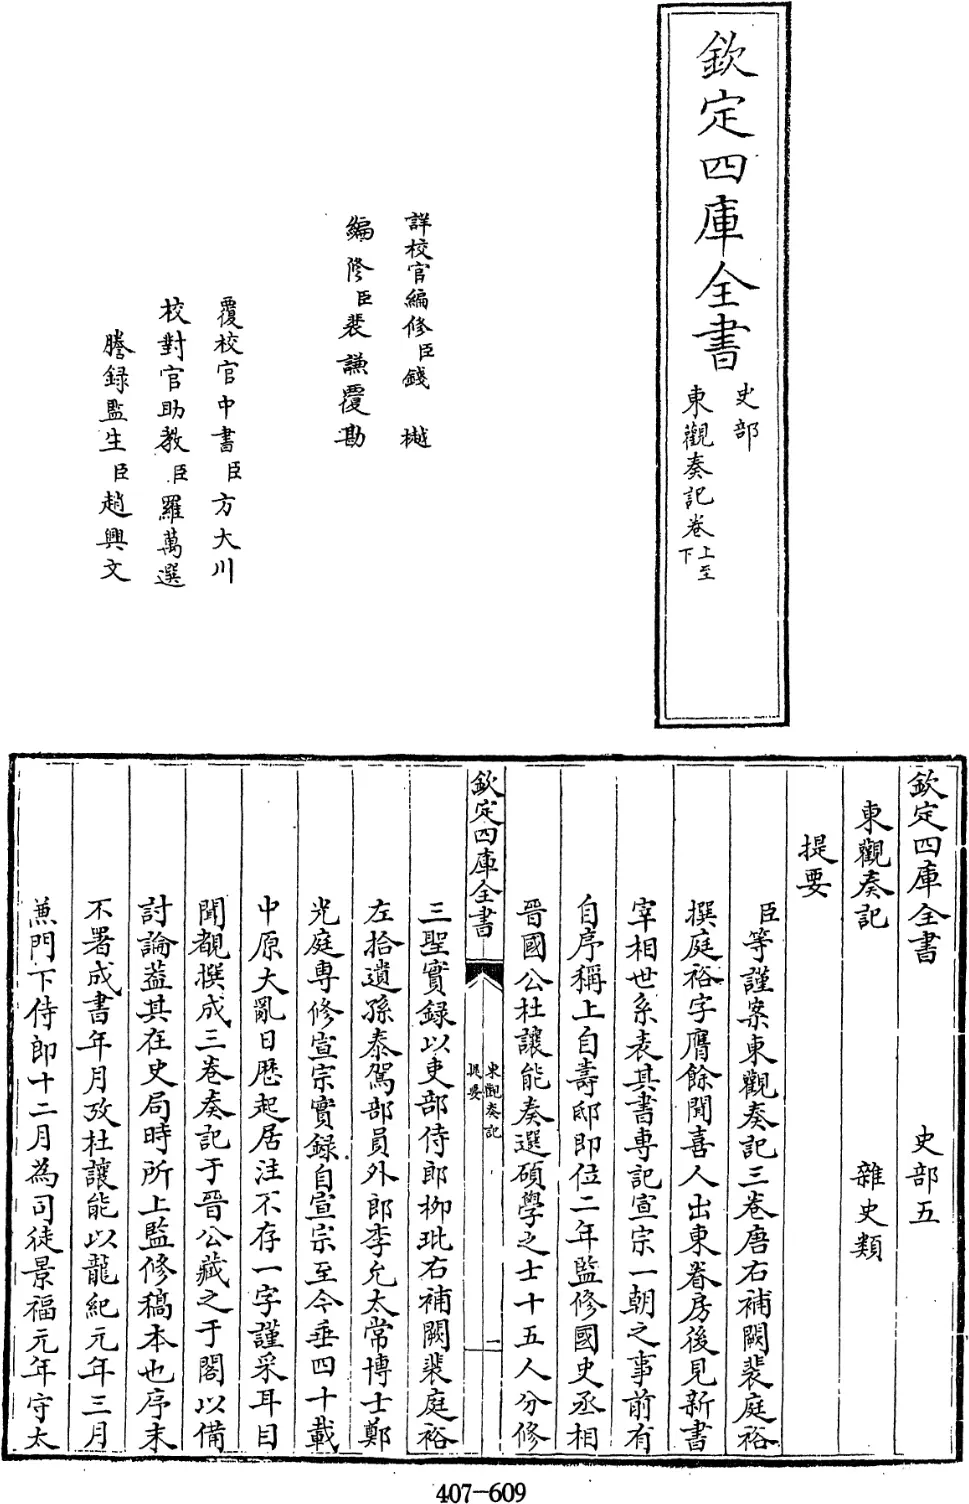 欽定四庫全書
史部
東觀奏記卷上至下
詳校官編修臣錢樾
編修臣裴謙覆勘
覆校官中書臣方大川
校對官助教臣羅萬選
謄録監生臣趙興文
欽定四庫全書 史部五
東觀奏記 雜史類
提要
臣等謹案東觀奏記三卷唐右補闕裴庭裕
撰庭裕字膺餘聞喜人出東眷房後見新書
宰相世系表其書專記宣宗一朝之事前有
自序稱上自壽邸即位二年監修國史丞相
晉國公杜讓能奏選碩學之士十五人分修
欽定四庫全書
東觀奏記
提要
一
三聖實録以吏部侍郎柳玭右補闕裴庭裕
左拾遺孫泰駕部員外郎李允太常博士鄭
光庭専修宣宗實録自宣宗至今垂四十載
中原大亂日歴起居注不存一字謹采耳目
聞覩撰成三卷奏記于晉公藏之于閣以備
討論葢其在史局時所上監修稿本也序末
不署成書年月攷杜讓能以龍紀元年三月
兼門下侍郎十二月為司徒景福元年守太
407-609